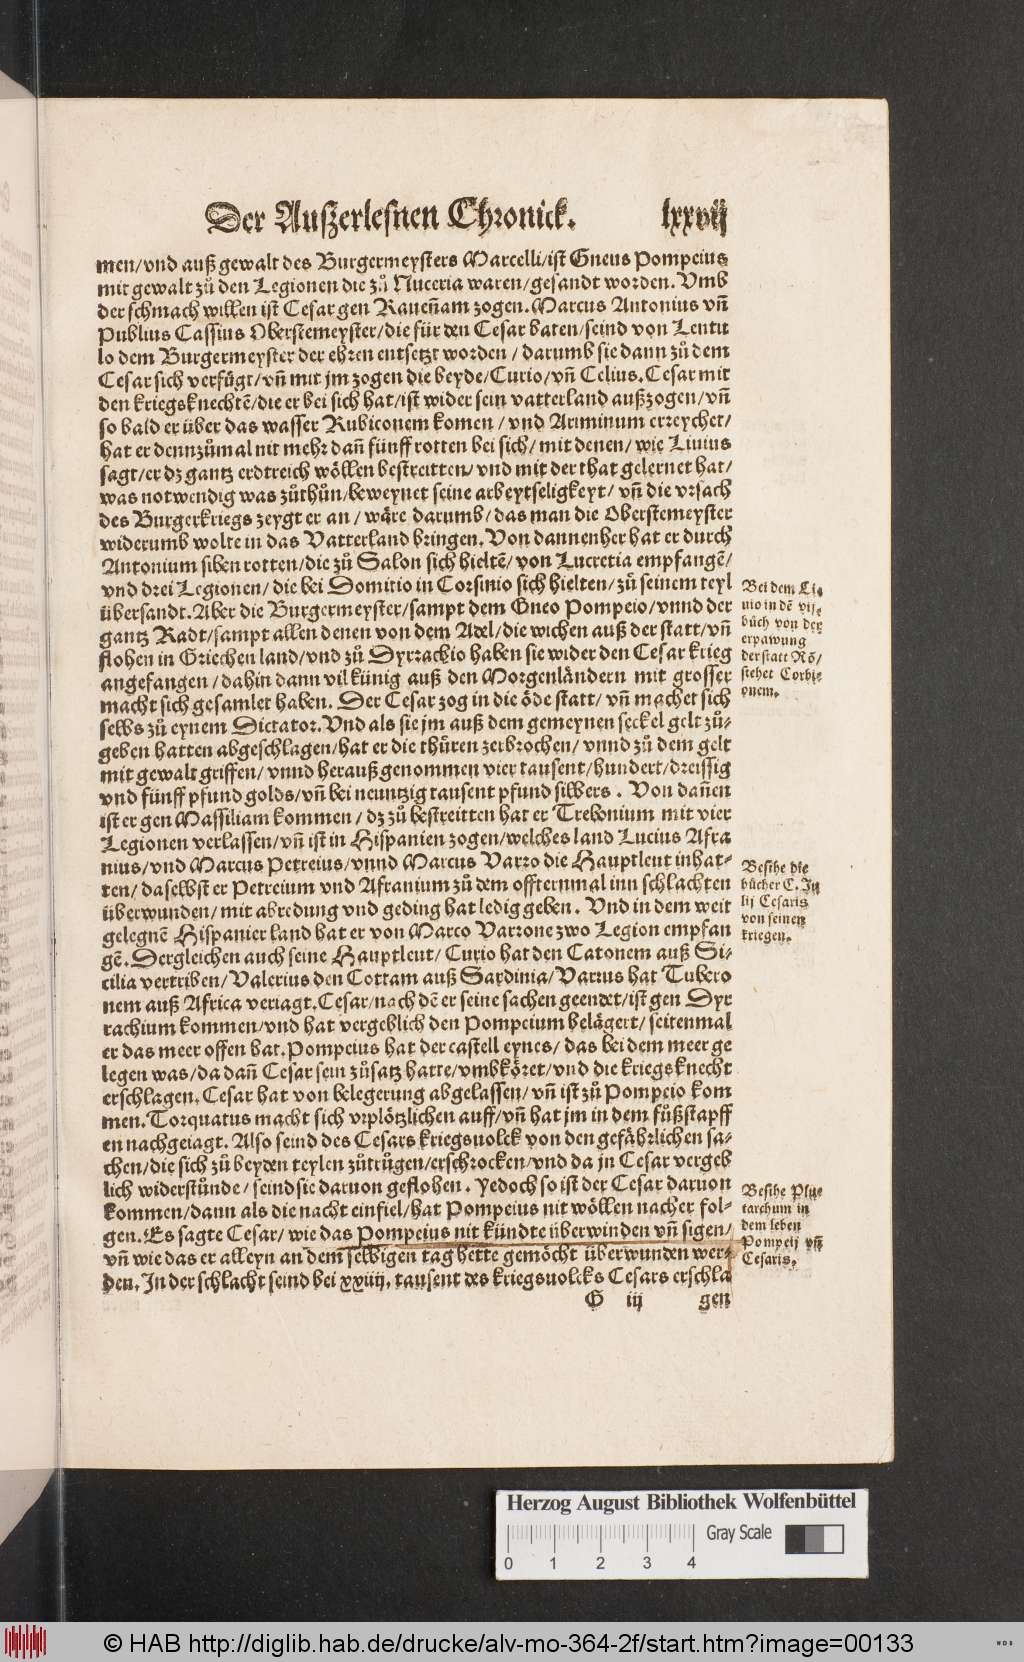 Der Außerlesnen Chronick. lxxvij
men/vnd auß gewalt des Burgermeysters Marcelli/ist Gneus Pompeius
mit gewalt zů den Legionen die zů Nuceria waren/gesandt worden. Vmb
der schmach willen ist Cesar gen Raueñam zogen. Marcus Antonius vñ
Publius Cassius Oberstemeyster/die für den Cesar baten/seind von Lentu
lo dem Burgermeyster der ehren entsetzt worden / darumb sie dann zů dem
Cesar sich verfügt/vñ mit jm zogen die beyde/Curio/vñ Celius. Cesar mit
den kriegsknechtē/die er bei sich hat/ist wider sein vatterland außzogen/vñ
so bald er über das wasser Rubiconem komen / vnd Ariminum erreychet/
hat er dennzůmal nit mehr dañ fünff rotten bei sich/ mit denen/ wie Liuius
sagt/er dz gantz erdtreich wöllen bestreitten/ vnd mit der that gelernet hat/
was notwendig was zůthůn/beweynet seine arbeytseligkeyt/ vñ die vrsach
des Burgerkriegs zeygt er an / wäre darumb/das man die Oberstemeyster
widerumb wolte in das Vatterland bringen. Von dannenher hat er durch
Antonium siben rotten/die zů Salon sich hieltē/ von Lucretia empfangē/
vnd drei Legionen/die bei Domitio in Corsinio sich hielten/ zů seinem teyl
übersandt. Aber die Burgermeyster/sampt dem Gneo Pompeio/vnnd der
gantz Radt/sampt allen denen von dem Adel/die wichen auß der statt/vñ
flohen in Griechen land/vnd zů Dyrrachio haben sie wider den Cesar krieg
angefangen/dahin dann vil künig auß den Morgenländern mit grosser
macht sich gesamlet haben. Der Cesar zog in die öde statt/ vñ machet sich
selbs zů eynem Dictator. Vnd als sie jm auß dem gemeynen seckel gelt zů-
geben hatten abgeschlagen/hat er die thüren zerbrochen/ vnnd zů dem gelt
mit gewalt griffen/ vnnd heraußgenommen vier tausent/hundert/dreissig
vnd fünff pfund golds/vñ bei neuntzig tausent pfund silbers . Von dañen
ist er gen Massiliam kommen / dz zů bestreitten hat er Trebonium mit vier
Legionen verlassen/vñ ist in Hispanien zogen/welches land Lucius Afra
nius/vnd Marcus Petreius/vnnd Marcus Varro die Hauptleut inhat-
ten/ daselbst er Petreium vnd Afranium zů dem offternmal inn schlachten
überwunden/mit abredung vnd geding hat ledig geben. Vnd in dem weit
gelegnē Hispanier land hat er von Marco Varrone zwo Legion empfan
gē. Dergleichen auch seine Hauptleut/ Curio hat den Catonem auß Si-
cilia vertriben/Valerius den Cottam auß Sardinia/Varrus hat Tubero
nem auß Africa veriagt. Cesar/nach dē er seine sachen geendet/ist gen Dyr
rachium kommen/vnd hat vergeblich den Pompeium belägert/ seitenmal
er das meer offen hat. Pompeius hat der castell eynes/ das bei dem meer ge
legen was/da dañ Cesar sein zůsatz hatte/vmbköret/vnd die kriegsknecht
erschlagen. Cesar hat von belegerung abgelassen/ vñ ist zů Pompeio kom
men. Torquatus macht sich vrplötzlichen auff/vñ hat jm in dem fůßstapff
en nachgeiagt. Also seind des Cesars kriegsuolck von den gefährlichen sa-
chen/die sich zů beyden teylen zůtrůgen/erschrocken/vnd da jn Cesar vergeb
lich widerstůnde/ seind sie daruon geflohen. Yedoch so ist der Cesar daruon
kommen/dann als die nacht einfiel/hat Pompeius nit wöllen nacher fol-
gen. Es sagte Cesar/ wie das Pompeius nit kündte überwinden vñ sigen/
vñ wie das er alleyn an dem selbigen tag hette gemöcht überwunden wer-
den. In der schlacht seind bei xxiiij. tausent des kriegsuolcks Cesars erschla
G iij gen
Bei dem Li-
uio in dē
bůch von der
erpawung
der statt Rō/
stehet Corbi-
onem.
Besihe die
bücher C. Ju
lij Cesaris
von seinen
kriegen.
Besihe Plu-
tarchum in
dem leben
Pompeij vñ
Cesaris.
Herzog August Bibliothek Wolfenbüttel
Gray Scale
0 1 2 3 4
© HAB http://diglib.hab.de/drucke/alv-mo-364-2f/start.htm?image=00133